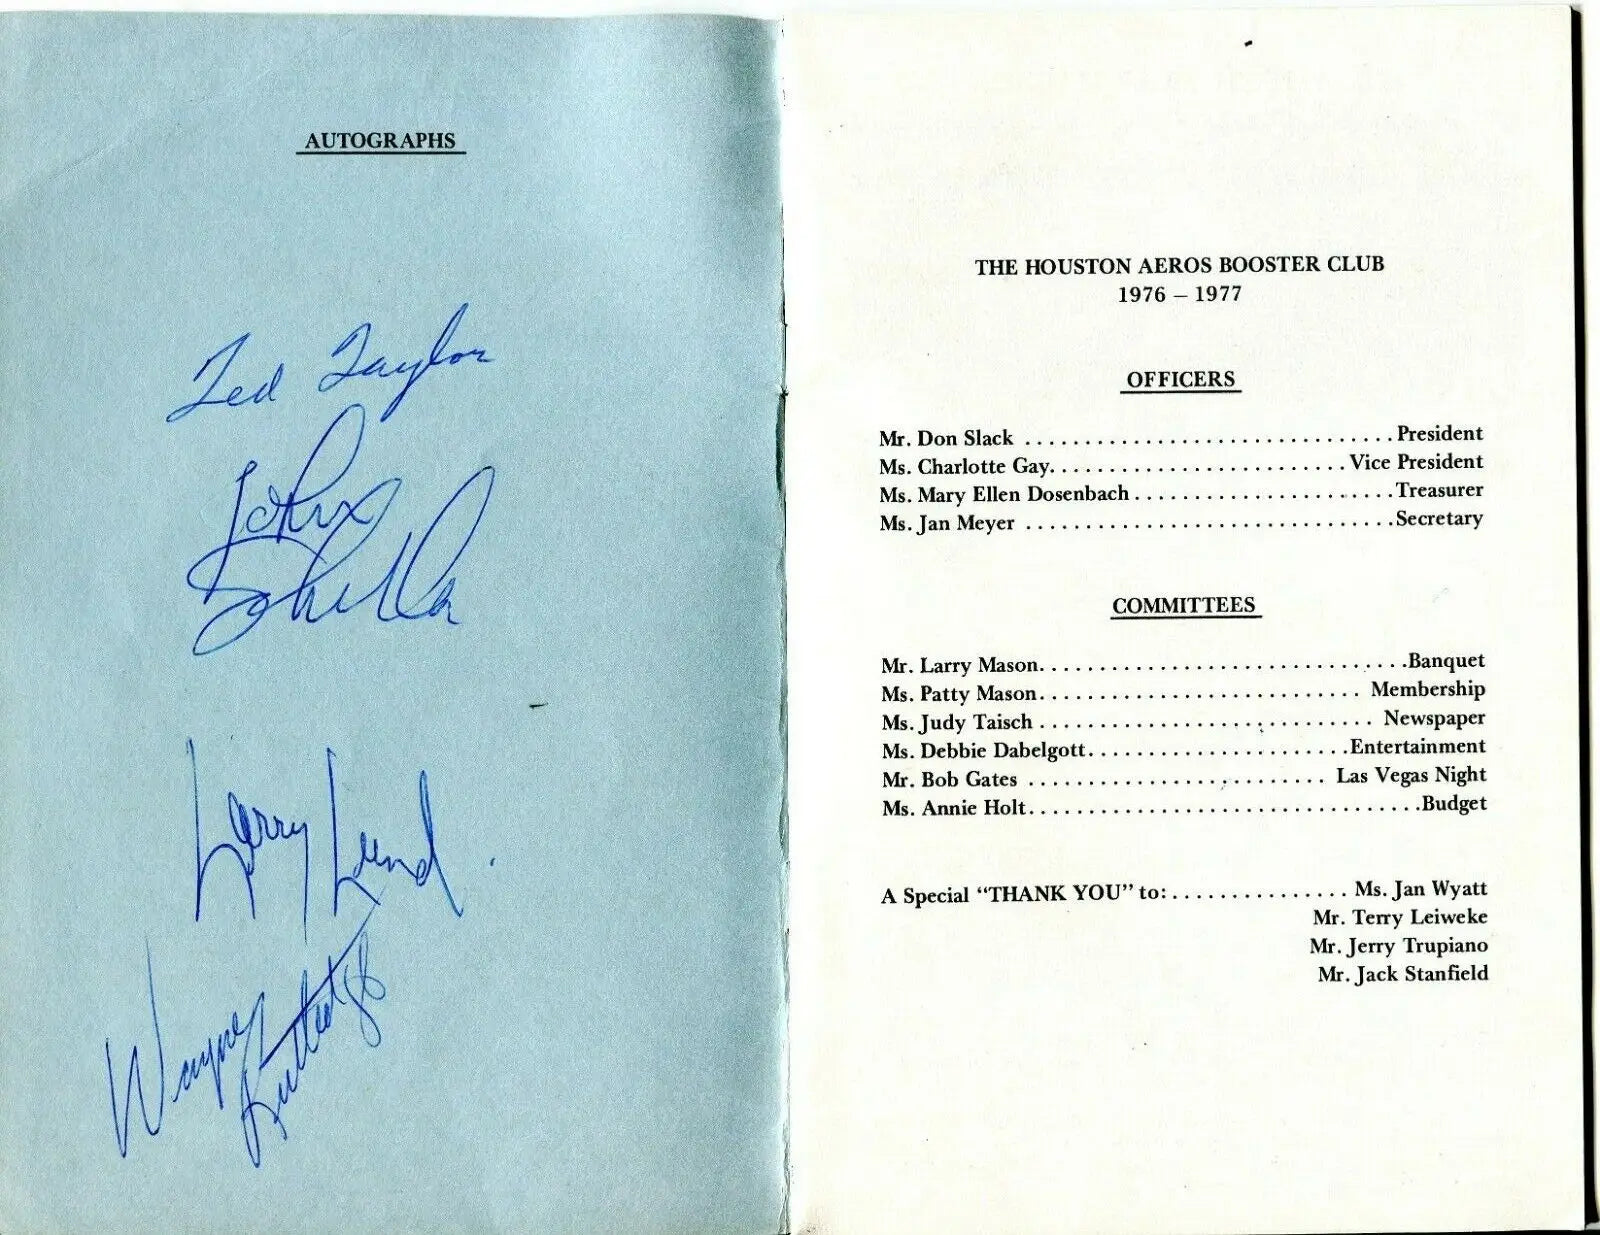 AUTOGRAPHS
Ted Taylor
John
Schella
Larry Lund
Wayne
Rutledge
THE HOUSTON AEROS BOOSTER CLUB
1976 – 1977
OFFICERS
Mr. Don Slack ............................... President
Ms. Charlotte Gay......................... Vice President
Ms. Mary Ellen Dosenbach...................... Treasurer
Ms. Jan Meyer ............................... Secretary
COMMITTEES
Mr. Larry Mason............................... Banquet
Ms. Patty Mason........................... Membership
Ms. Judy Taisch ............................ Newspaper
Ms. Debbie Dabelgott...................... Entertainment
Mr. Bob Gates ......................... Las Vegas Night
Ms. Annie Holt................................. Budget
A Special “THANK YOU” to:............... Ms. Jan Wyatt
Mr. Terry Leiweke
Mr. Jerry Trupiano
Mr. Jack Stanfield